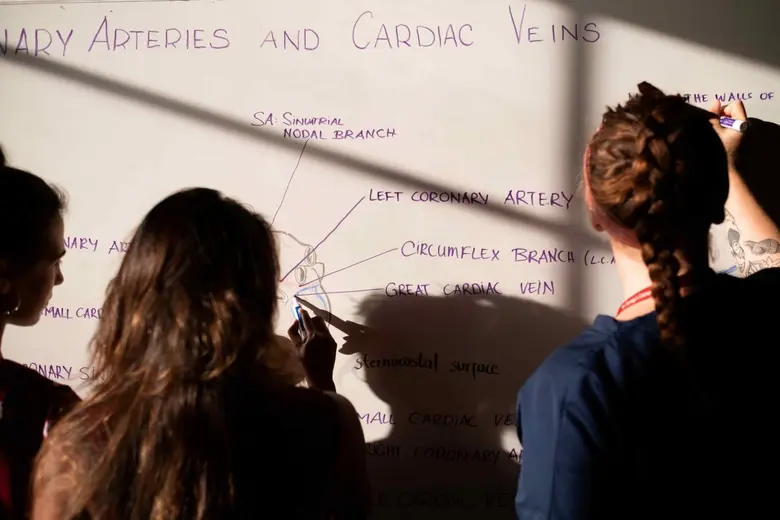 NARY ARTERIES AND CARDIAC VEINS
THE WALLS OF
SA: SINUATRIAL
NODAL BRANCH
LEFT CORONARY ARTERY
NARY AR
CIRCUMFLEX BRANCH (L.C.
GREAT CARDIAC VEIN
MALL CARD
sternocostal surface
ONARY SI
MALL CARDIAC VE
IGHT CORONARY A
CARDIAC VE